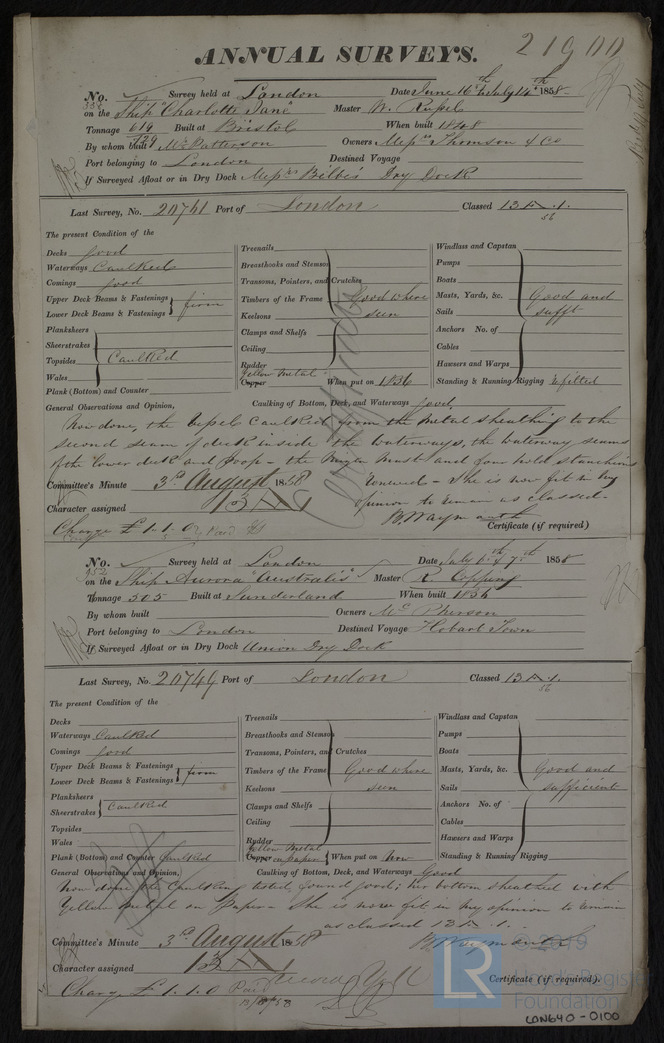 21900
ANNUAL SURVEYS.
No. Survey held at London Date June 16th to July 14th 1858
on the Ship "Charlotte Jane" Master W.
Tonnage 619 729 Built at Bristol When built 1848
By whom built Mr Patterson Owners Messrs Thomson & Co
Port belonging to London Destined Voyage
If Surveyed Afloat or in Dry Dock Messrs Bilbe's Dry Dock
Last Survey, No. 20741 Port of London Classed 13 A.1.
56
The present Condition of the
Decks good
Waterways Caulked
Comings good
Upper Deck Beams & Fastenings
Lower Deck Beams & Fastenings firm
Planksheers
Sheerstrakes
Topsides Caulked
Wales
Plank (Bottom) and Counter
Treenails
Breasthooks and Stemson
Transoms, Pointers, and Crutches
Timbers of the Frame Good where
Keelsons seen
Clamps and Shelfs
Ceiling
Rudder
Yellow Metal
Copper When put on 1856
Windlass and Capstan
Pumps
Boats
Masts, Yards, &c. Good and
Sails sufft
Anchors No. of
Cables
Hawsers and Warps
Standing & Running Rigging refitted
General Observations and Opinion, Caulking of Bottom, Deck, and Waterways good
Now done, the Vessel Caulked from the metal sheathing to the
second seam of deck inside the waterways, the waterway seams
of the lower deck and poop - the mizen mast and four hold stanchions
renewed - She is now fit in my
opinion to remain as classed.
Committee's Minute 3rd August 1858
Character assigned 13 A 1
B. Waymouth
Charge £1.1.0 Paid Certificate (if required)
No. 952 Survey held at London Date July 6th & 7th 1858
on the Ship Aurora "Australis" Master R. Copping
Tonnage 505 Built at Sunderland When built 1856
By whom built Owners Mc Pherson
Port belonging to London Destined Voyage Hobart Town
If Surveyed Afloat or in Dry Dock Union Dry Dock
Last Survey, No. 20749 Port of London Classed 13 A.1.
56
The present Condition of the
Decks
Waterways Caulked
Comings good
Upper Deck Beams & Fastenings
Lower Deck Beams & Fastenings firm
Planksheers
Sheerstrakes Caulked
Topsides
Wales
Plank (Bottom) and Counter Caulked
Treenails
Breasthooks and Stemson
Transoms, Pointers, and Crutches
Timbers of the Frame Good where
Keelsons seen
Clamps and Shelfs
Ceiling
Rudder
Yellow Metal
Copper on paper When put on Now
Windlass and Capstan
Pumps
Boats
Masts, Yards, &c. Good and
Sails sufficient
Anchors No. of
Cables
Hawsers and Warps
Standing & Running Rigging
General Observations and Opinion, Caulking of Bottom, Deck, and Waterways Good
Now done, the Caulking tested, found good; her bottom sheathed with
Yellow metal on Paper - She is now fit in my opinion to remain
as classed 13 A.1.
Committee's Minute 3rd August 1858
B. Waymouth
Character assigned 13 A 1
Certificate (if required).
Charge £1.1.0 Paid
© 2019
LR
Lloyd's Register
Foundation
LON640-0100